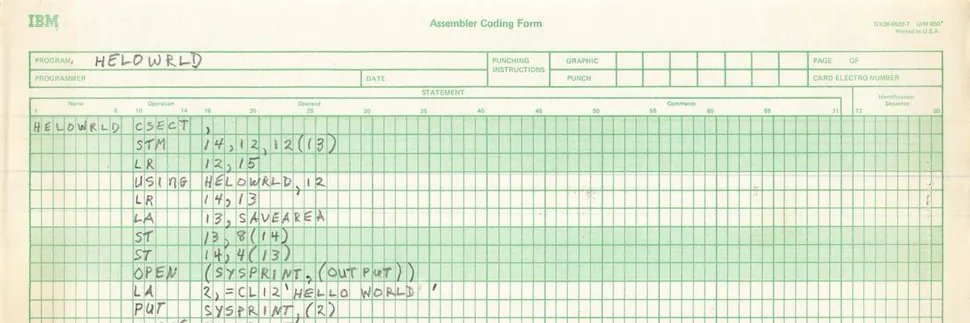 IBM
Assembler Coding Form
GX28-6509-7 U/M 050*
Printed in U.S.A.
PROGRAM HELOWRLD
PUNCHING INSTRUCTIONS
GRAPHIC
PAGE OF
PROGRAMMER
DATE
PUNCH
CARD ELECTRO NUMBER
STATEMENT
Identification
Sequence
Name Operation Operand Comments
1 8 10 14 16 20 25 30 35 40 45 50 55 60 65 71 73 80
HELOWRLD CSECT ,
STM 14,12,12(13)
LR 12,15
USING HELOWRLD,12
LR 14,13
LA 13,SAVEAREA
ST 13,8(14)
ST 14,4(13)
OPEN (SYSPRINT,(OUTPUT))
LA 2,=CL12'HELLO WORLD '
PUT SYSPRINT,(2)